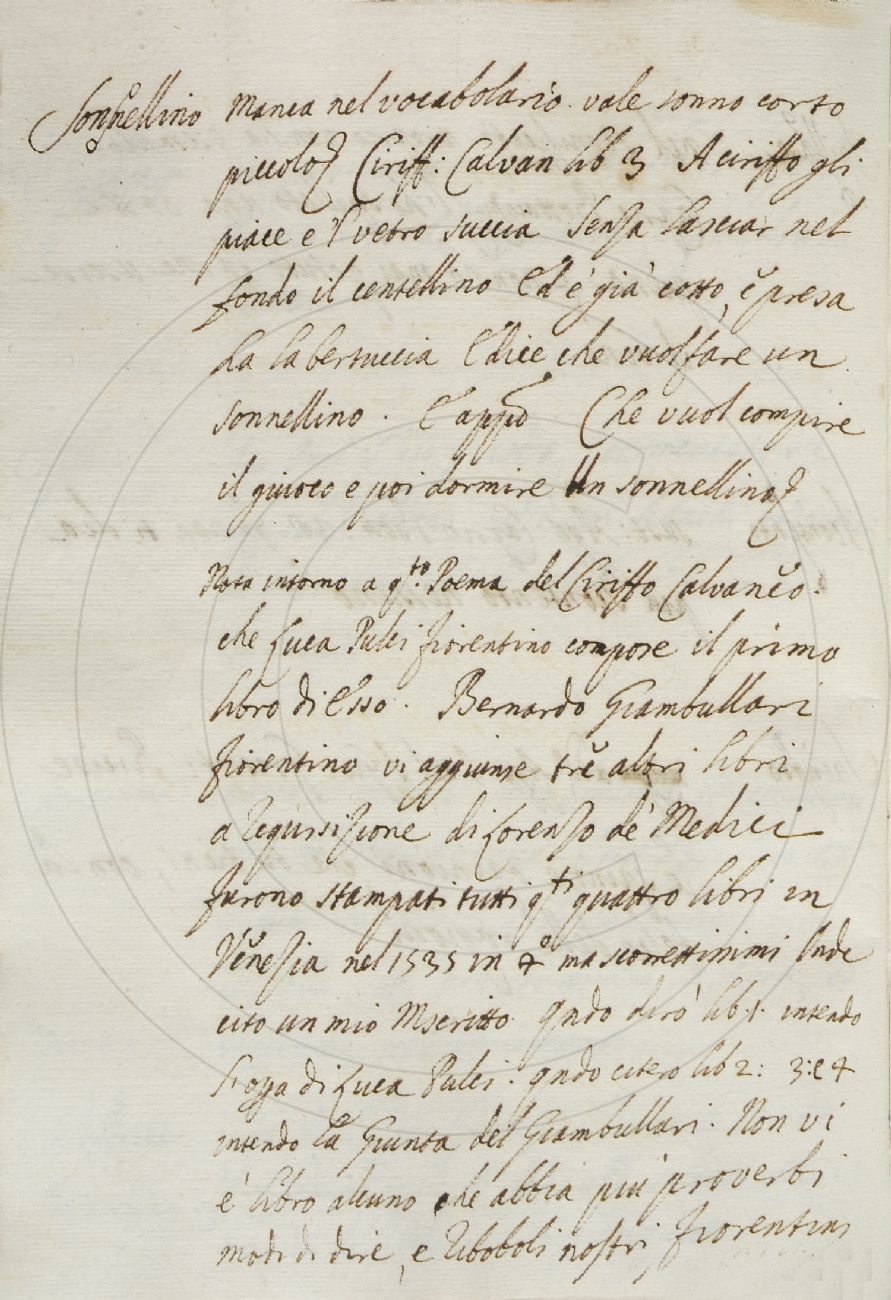 Sonnellino Manca nel vocabolario. vale sonno corto
piccolo Ciriff: Calvan lib 3 A ciriffo gli
piace e 'l vetro succia Senza lasciar nel
fondo il centellino Ed è già cotto, e presa
ha la bertuccia E dice che vuol fare un
sonnellino. E app.o Che vuol compire
il giuoco e poi dormire Un sonnellino
Nota intorno a q.to Poema del Ciriffo Calvaneo.
che Luca Pulci fiorentino compose il primo
libro di Esso. Bernardo Giambullari
fiorentino vi aggiunse tre altri libri
a requisizione di Lorenzo de' Medici
furono stampati tutti q.ti quattro libri in
Venezia nel 1535 in 4.o ma scorrettissimi Onde
cito un mio Mscritto. qndo dirò lib. 1. intendo
l'opa di Luca Pulci. qndo citero lib 2: 3: e 4
intendo la Giunta del Giambullari. Non vi
è libro alcuno che abbia più proverbi
modi di dire, e riboboli nostri fiorentini